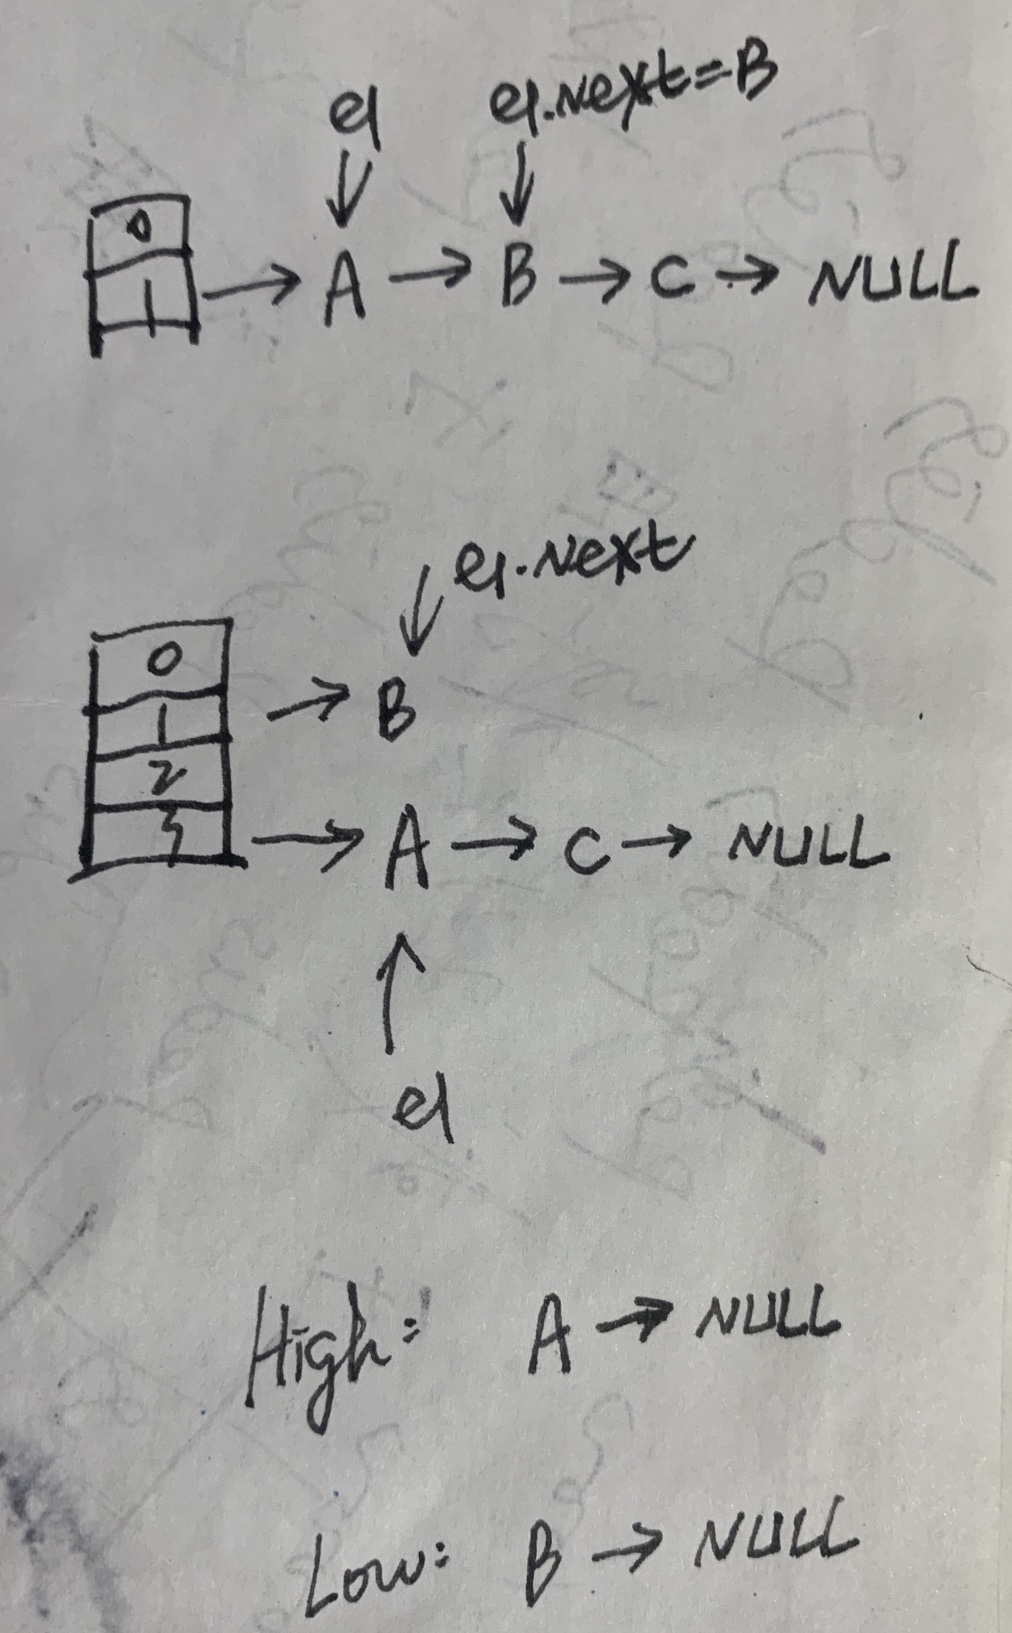 e1 e1.next=B
0
1 → A → B → C → NULL
e1.next
0
1 → B
2
3 → A → C → NULL
e1
High: A → NULL
Low: B → NULL